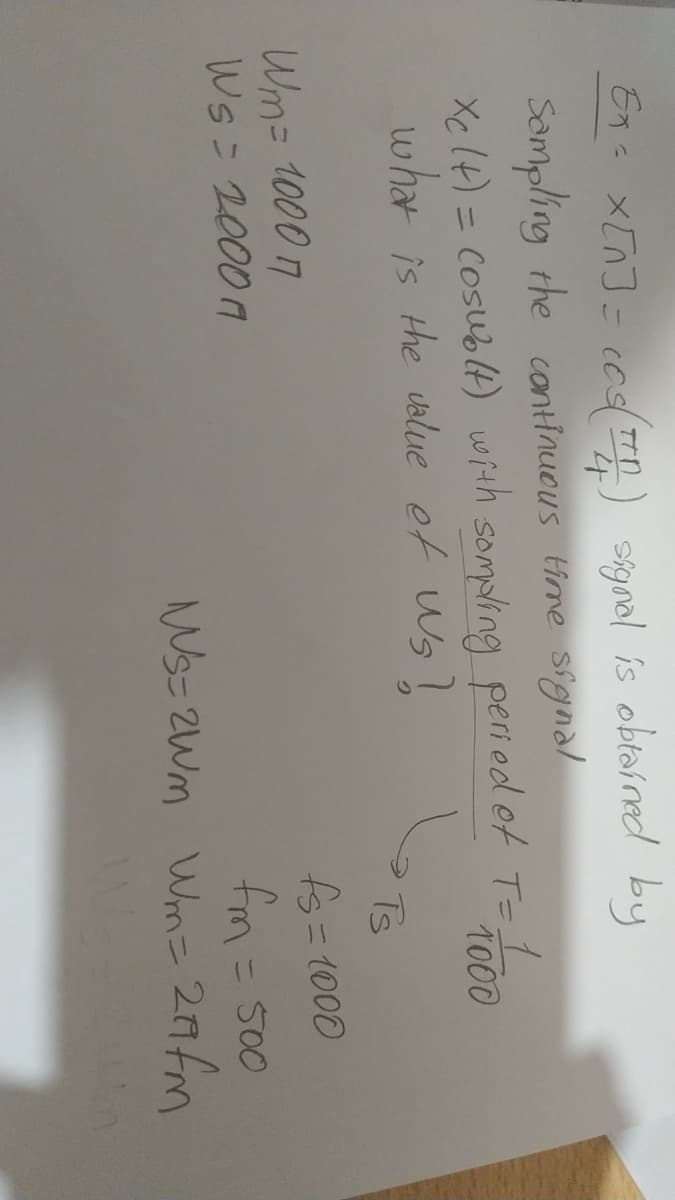 Ex: x[n] = cos(πn/4) signal is obtained by
Sampling the continuous time signal
xc(t) = cosw₀(t) with sampling period of T = 1/1000
what is the value of ws?
→ Ts
fs = 1000
Wm = 1000π
fm = 500
Ws = 2000π
Ws = 2Wm Wm = 2πfm